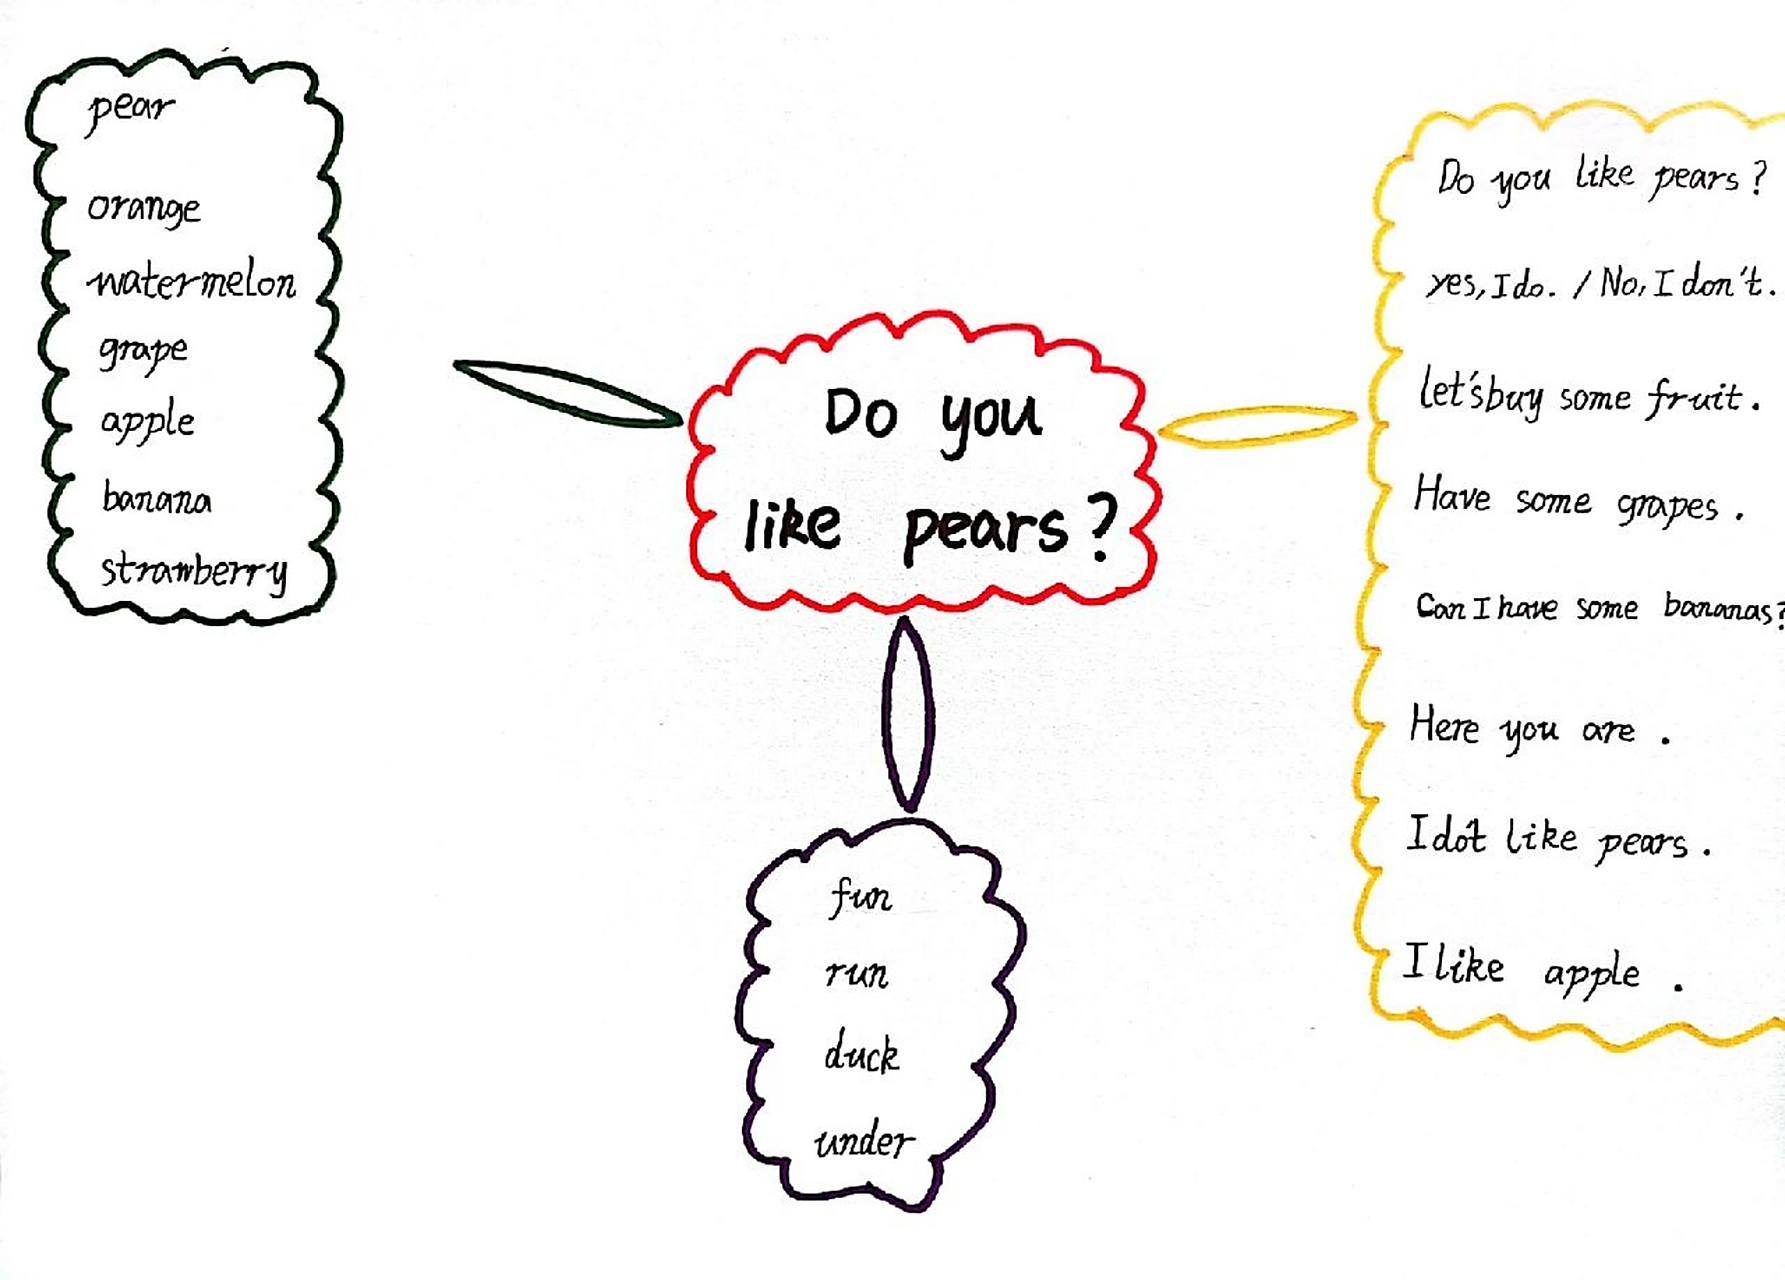 pear
orange
watermelon
grape
apple
banana
strawberry
Do you
like pears?
fun
run
duck
under
Do you like pears?
yes, I do. / No, I don't.
let's buy some fruit.
Have some grapes.
Can I have some bananas?
Here you are.
I do't like pears.
I like apple.